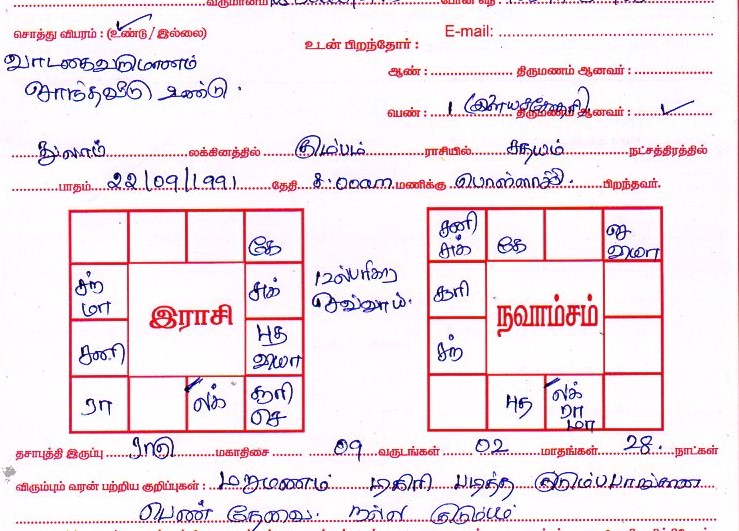 சொத்து விபரம் : (உண்டு / இல்லை)
E-mail:
உடன் பிறந்தோர் :
வாடகைவருமானம்
ஆண் : திருமணம் ஆனவர் :
சொந்தவீடு உண்டு.
பெண் : 1 (இளையசகோதரி) திருமணம் ஆனவர் : ✓
துலாம் லக்கினத்தில் கும்பம் ராசியில் சதயம் நட்சத்திரத்தில்
பாதம் 22/09/1991 தேதி 8.00am மணிக்கு பொள்ளாச்சி. பிறந்தவர்.
கே
சந்
மா
சுக்
சனி
புத
குரு
ரா
லக்
சூரி
செ
இராசி
சனி
சுக்
கே
சூரி
சந்
புத
லக்
ரா
மா
நவாம்சம்
தசாபுத்தி இருப்பு ராகு மகாதிசை 09 வருடங்கள் 02 மாதங்கள் 28. நாட்கள்
விரும்பும் வரன் பற்றிய குறிப்புகள் : மறுமணம் டிகிரி படித்த குடும்பபாங்கான
பெண் தேவை. நல்ல குடும்பம்